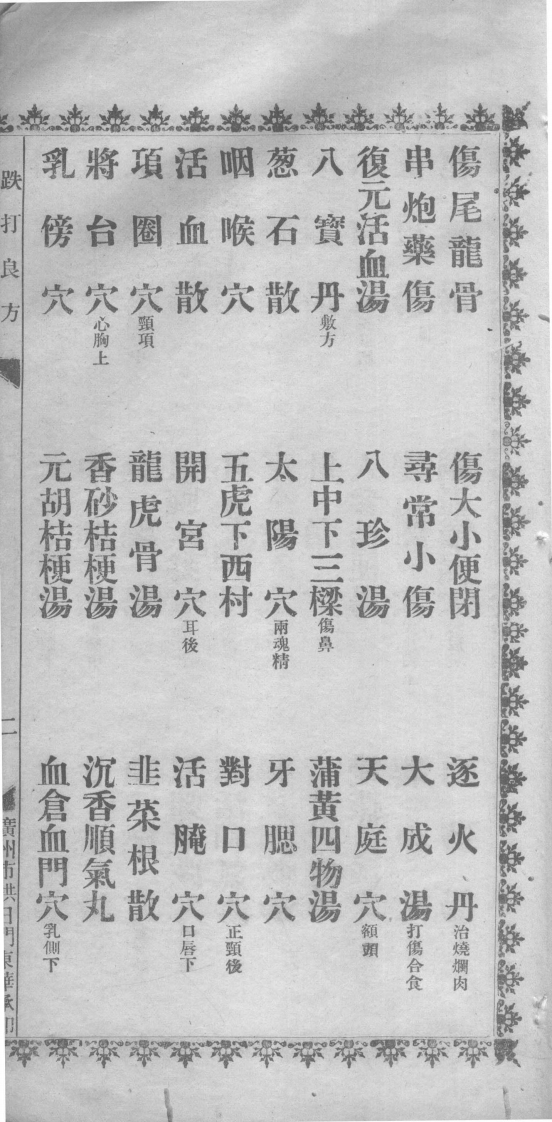 傷尾龍骨 傷大小便閉 逐火丹治燒爛肉
串炮藥傷 尋常小傷 大成湯打傷合食
復元活血湯 八珍湯 天庭穴額頭
八寶丹敷方 上中下三樑傷鼻 蒲黃四物湯
葱石散 太陽穴兩魂精 牙腮穴
咽喉穴 五虎下西村 對口穴正頸後
活血散 開宮穴耳後 活腌穴口唇下
項圈穴頸項 龍虎骨湯 韭菜根散
將台穴心胸上 香砂桔梗湯 沉香順氣丸
乳傍穴 元胡桔梗湯 血倉血門穴乳側下
跌打良方 二 廣州市 門東華承印